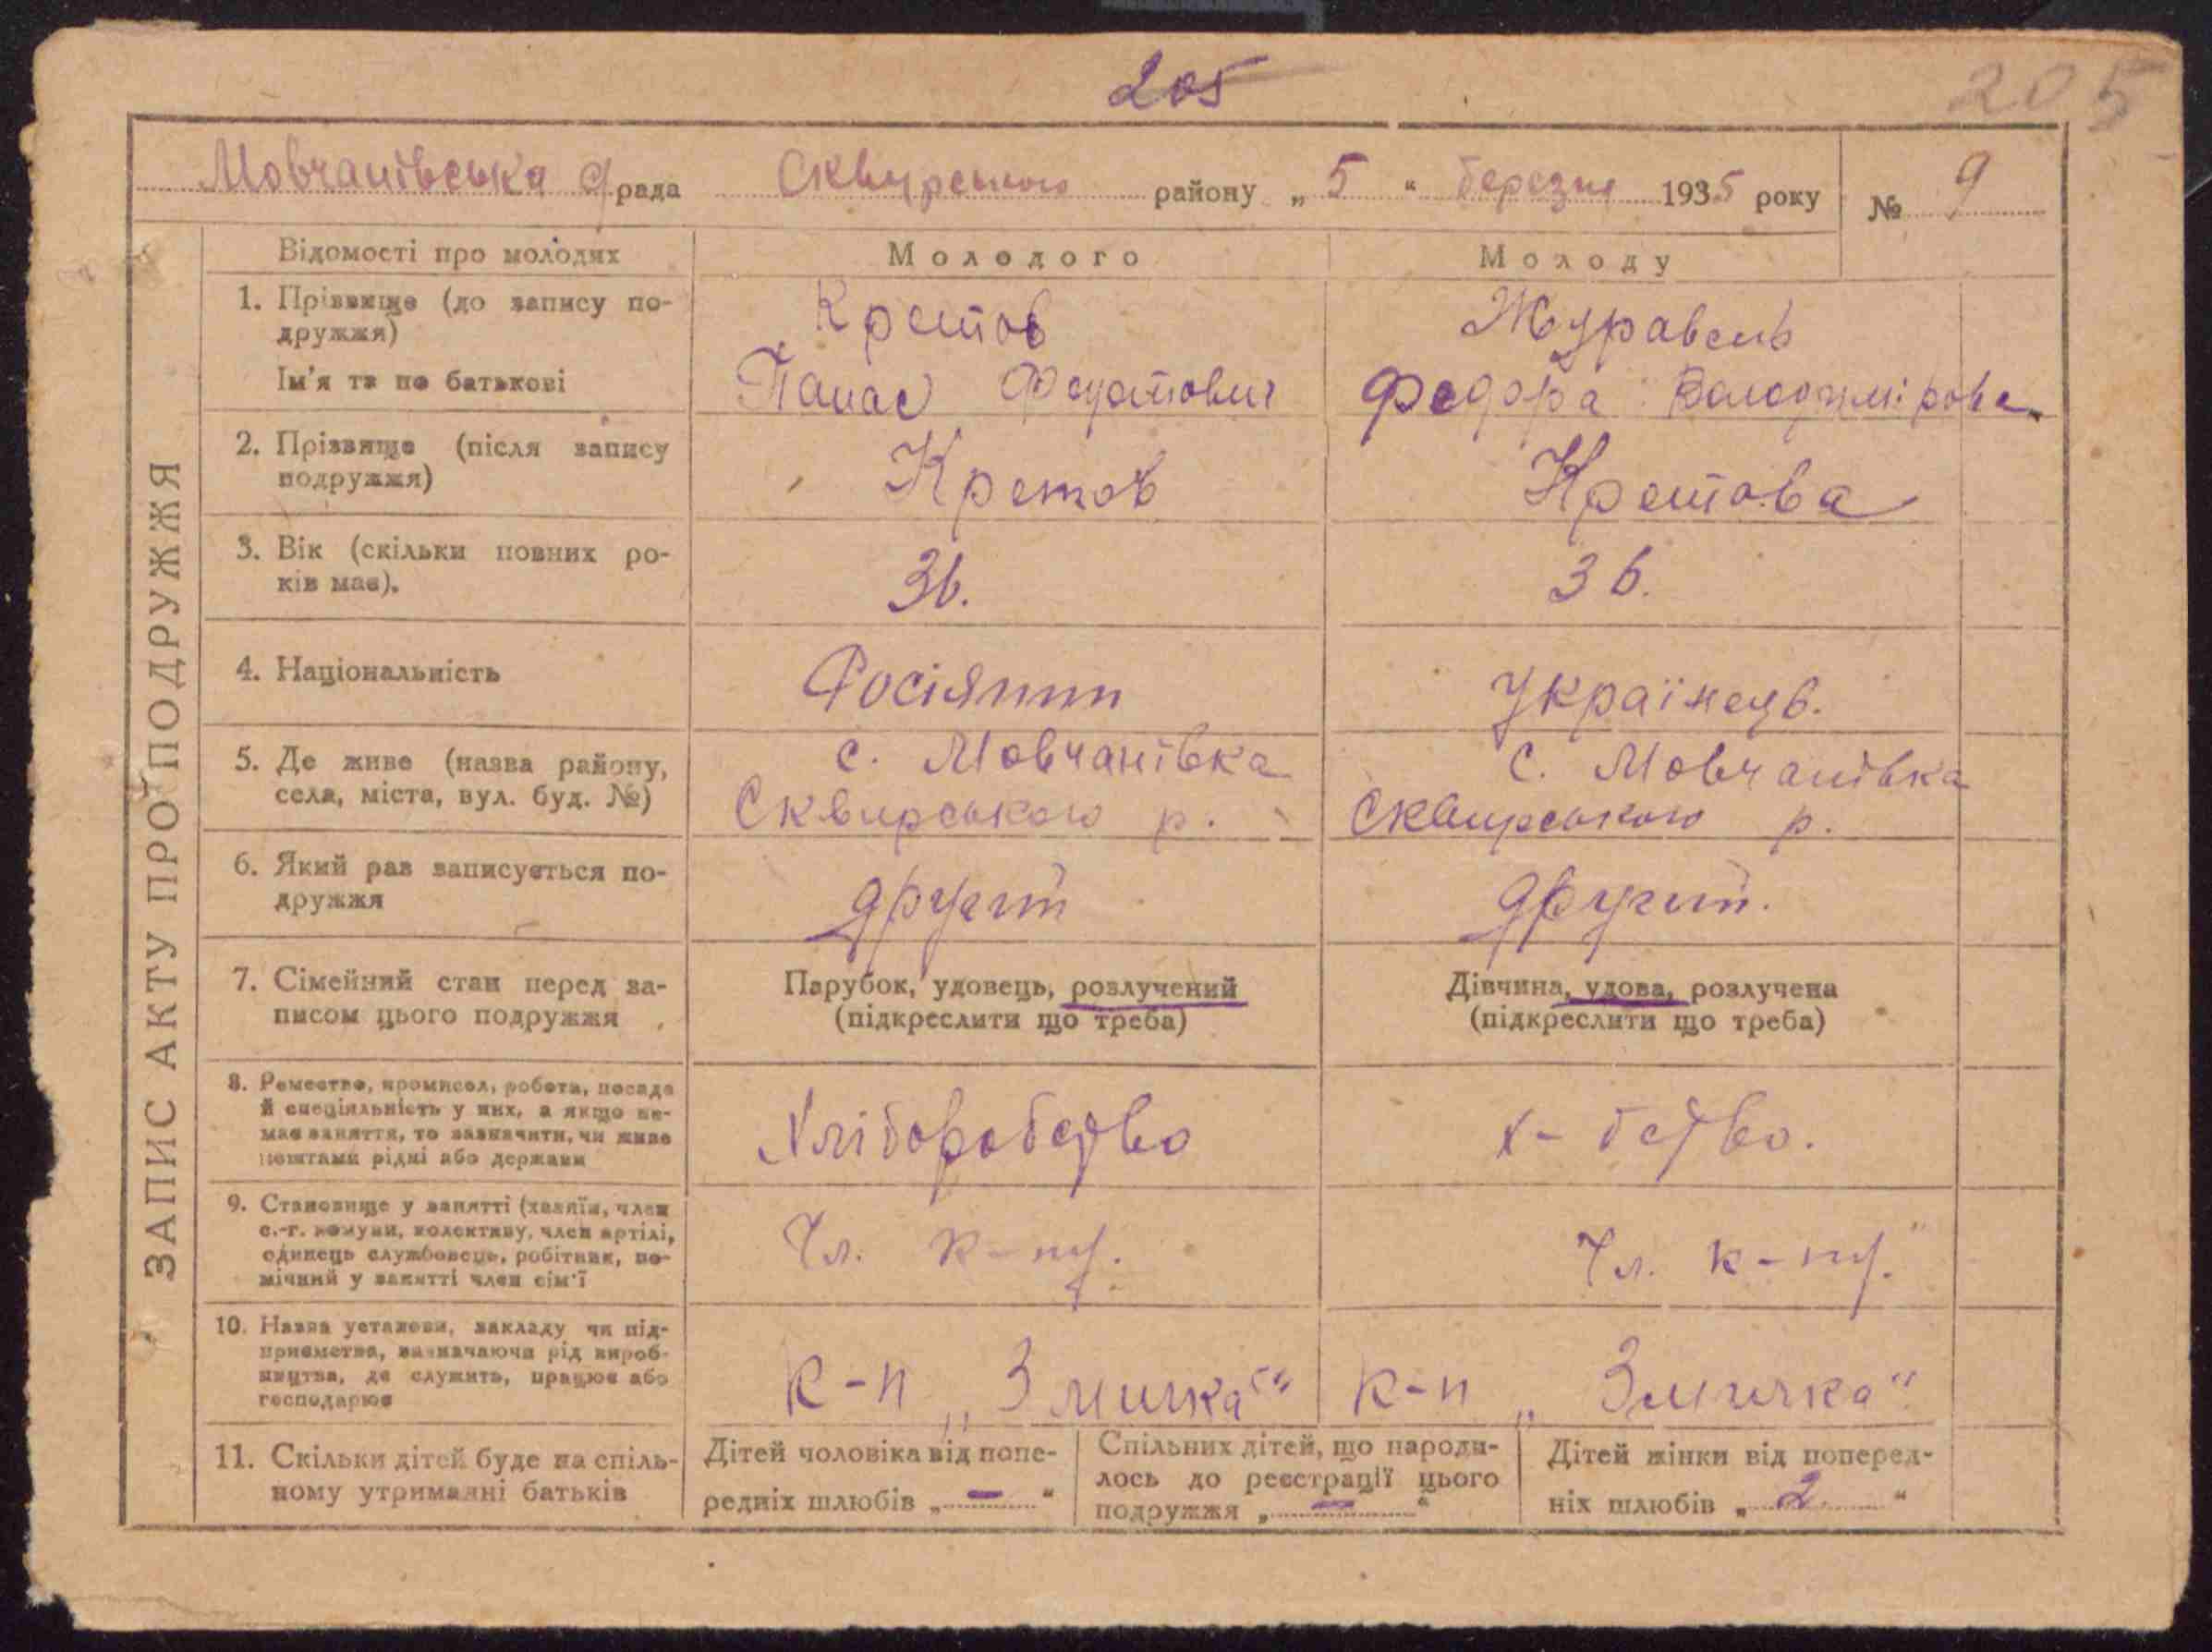 205
205
Мовчанівська с/рада Сквирського району „ 5 “ березня 1935 року № 9
ЗАПИС АКТУ ПРО ПОДРУЖЖЯ
Відомості про молодих
Молодого
Молоду
1. Прізвище (до запису по-
дружжя)
Кретов
Журавель
Ім'я та по батькові
Панас
Федора Володимірова
2. Прізвище (після запису
подружжя)
Кретов
Кретова
3. Вік (скільки повних ро-
ків має).
36.
36.
4. Національність
Росіянин
Українець.
5. Де живе (назва району,
села, міста, вул. буд. №)
с. Мовчанівка
Сквирського р.
с. Мовчанівка
Сквирського р.
6. Який раз записується по-
дружжя
другий
другий.
7. Сімейний стан перед за-
писом цього подружжя
Парубок, удовець, розлучений
(підкреслити що треба)
Дівчина, удова, розлучена
(підкреслити що треба)
8. Ремество, промисел, робота, посада
й спеціяльність у них, а якщо не-
має заняття, то зазначити, чи живе
коштами рідні або держави
Хліборобство
х-бство.
9. Становище у занятті (хазяїн, член
с.-г. комуни, колективу, член артілі,
одинець службовець, робітник, по-
мічний у занятті член сім'ї
Чл. к-пу.
Чл. к-пу.
10. Назва установи, закладу чи під-
приємства, зазначаючи рід вироб-
ництва, де служить, працює або
господарює
к-п „Змичка“
к-п „Змичка“
11. Скільки дітей буде на спіль-
ному утриманні батьків
Дітей чоловіка від попе-
редніх шлюбів „ — “
Спільних дітей, що народи-
лось до реєстрації цього
подружжя „ — “
Дітей жінки від поперед-
ніх шлюбів „ 2. “